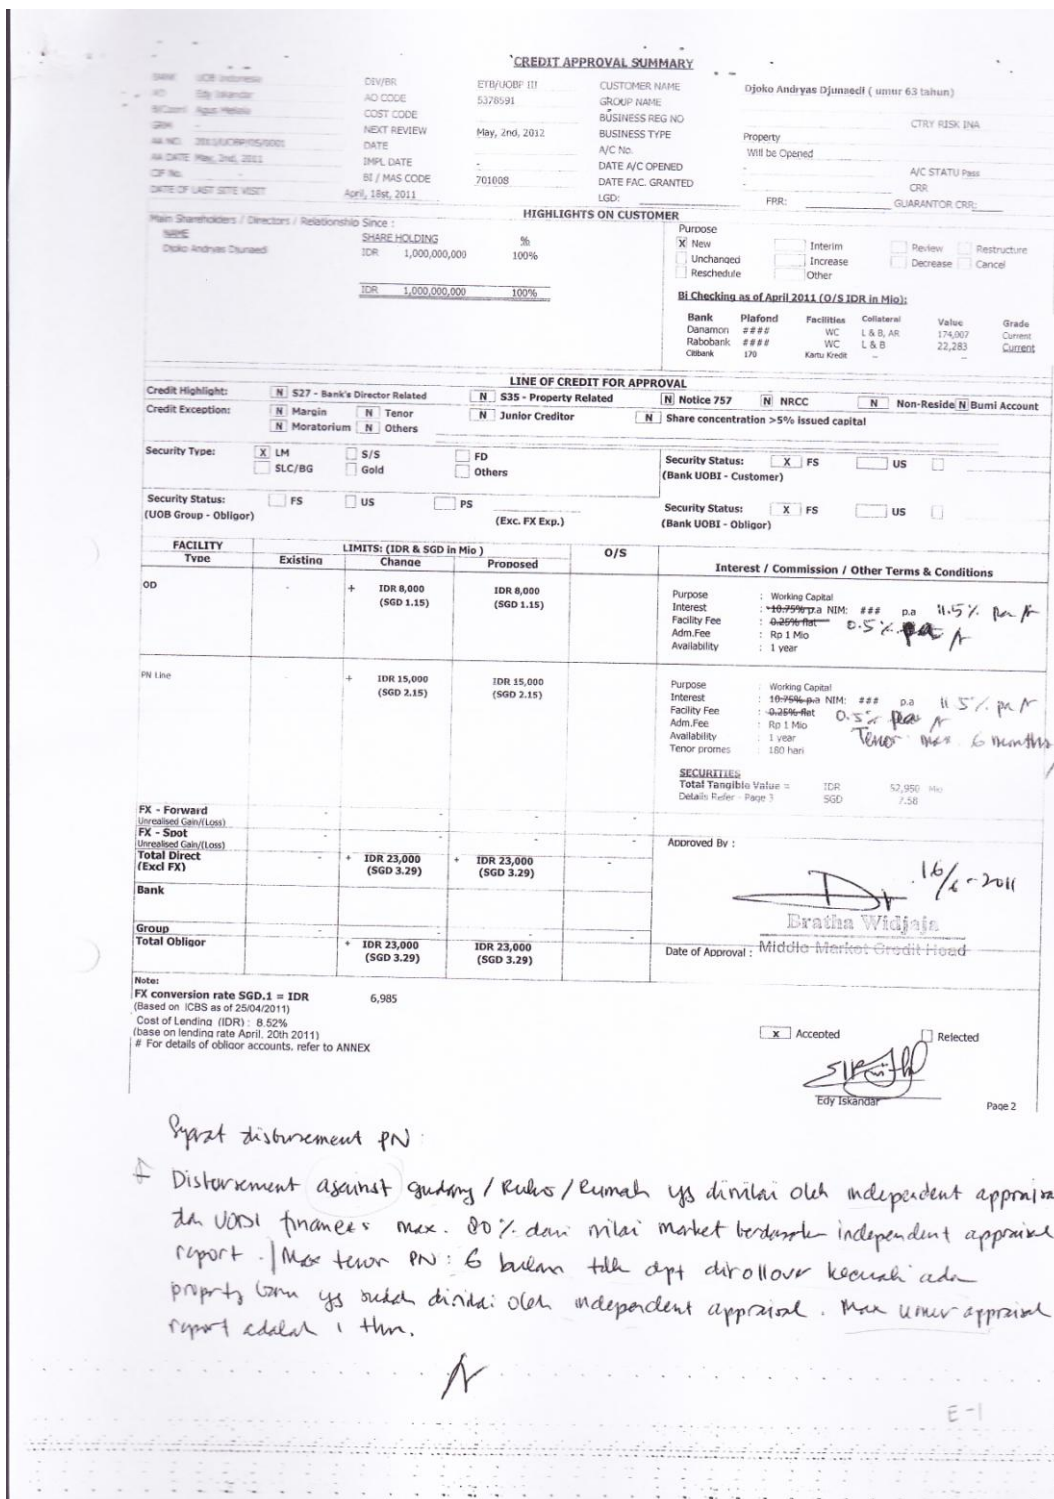 CREDIT APPROVAL SUMMARY
BANK UOB Indonesia DIV/BR ETB/UOBP III CUSTOMER NAME Djoko Andryas Djunaedi ( umur 63 tahun)
AO Edy Iskandar AO CODE 5378591 GROUP NAME
Agus COST CODE BUSINESS REG NO CTRY RISK INA
GRM - NEXT REVIEW May, 2nd, 2012 BUSINESS TYPE Property
AA NO. 2011/UOBP/05/0001 DATE A/C No. Will be Opened
AA DATE May, 2nd, 2011 IMPL DATE - DATE A/C OPENED - A/C STATU Pass
CIF No. - BI / MAS CODE 701008 DATE FAC. GRANTED - CRR
DATE OF LAST SITE VISIT April, 18st, 2011 LGD: FRR: GUARANTOR CRR:
HIGHLIGHTS ON CUSTOMER
Main Shareholders / Directors / Relationship Since :
NAME SHARE HOLDING %
Djoko Andryas Djunaedi IDR 1,000,000,000 100%
IDR 1,000,000,000 100%
Purpose
X New Interim Review Restructure
Unchanged Increase Decrease Cancel
Reschedule Other
Bi Checking as of April 2011 (O/S IDR in Mio):
Bank Plafond Facilities Collateral Value Grade
Danamon #### WC L & B, AR 174,007 Current
Rabobank #### WC L & B 22,283 Current
Citibank 170 Kartu Kredit - -
LINE OF CREDIT FOR APPROVAL
Credit Highlight: N S27 - Bank's Director Related N S35 - Property Related N Notice 757 N NRCC N Non-Reside N Bumi Account
Credit Exception: N Margin N Tenor N Junior Creditor N Share concentration >5% issued capital
N Moratorium N Others
Security Type: X LM S/S FD
SLC/BG Gold Others
Security Status: X FS US
(Bank UOBI - Customer)
Security Status: FS US PS
(UOB Group - Obligor) (Exc. FX Exp.)
Security Status: X FS US
(Bank UOBI - Obligor)
FACILITY LIMITS: (IDR & SGD in Mio ) O/S
Type Existing Change Proposed
Interest / Commission / Other Terms & Conditions
OD - + IDR 8,000 IDR 8,000
(SGD 1.15) (SGD 1.15)
Purpose : Working Capital
Interest : 10.75% p.a NIM: ### p.a 11.5% pa
Facility Fee : 0.25% flat 0.5%
Adm.Fee : Rp 1 Mio
Availability : 1 year
PN Line - + IDR 15,000 IDR 15,000
(SGD 2.15) (SGD 2.15)
Purpose : Working Capital
Interest : 10.75% p.a NIM: ### p.a 11.5% pa
Facility Fee : 0.25% flat 0.5%
Adm.Fee : Rp 1 Mio
Availability : 1 year Tenor max. 6 months
Tenor promes : 180 hari
SECURITIES
Total Tangible Value = IDR 52,950 Mio
Details Refer - Page 3 SGD 7.58
FX - Forward - - - -
Unrealised Gain/(Loss)
FX - Spot - - - -
Unrealised Gain/(Loss)
Total Direct - + IDR 23,000 + IDR 23,000 -
(Excl FX) (SGD 3.29) (SGD 3.29)
Bank
Group - - - -
Total Obligor + IDR 23,000 IDR 23,000
(SGD 3.29) (SGD 3.29)
Approved By :
16/6-2011
Bratha Widjaja
Date of Approval : Middle Market Credit Head
Note:
FX conversion rate SGD.1 = IDR 6,985
(Based on ICBS as of 25/04/2011)
Cost of Lending (IDR) : 8.52%
(base on lending rate April. 20th 2011)
# For details of obligor accounts. refer to ANNEX
x Accepted Rejected
Edy Iskandar
Page 2
Syarat disbursement PN :
Disbursement against gudang / Ruko / Rumah yg dinilai oleh independent appraisal
dan UOBI finances max. 80% dari nilai market berdasarkan independent appraisal
report. Max tenor PN : 6 bulan tdk dpt dirollover kecuali ada
property baru yg sudah dinilai oleh independent appraisal. Max umur appraisal
report adalah 1 thn.
E-1